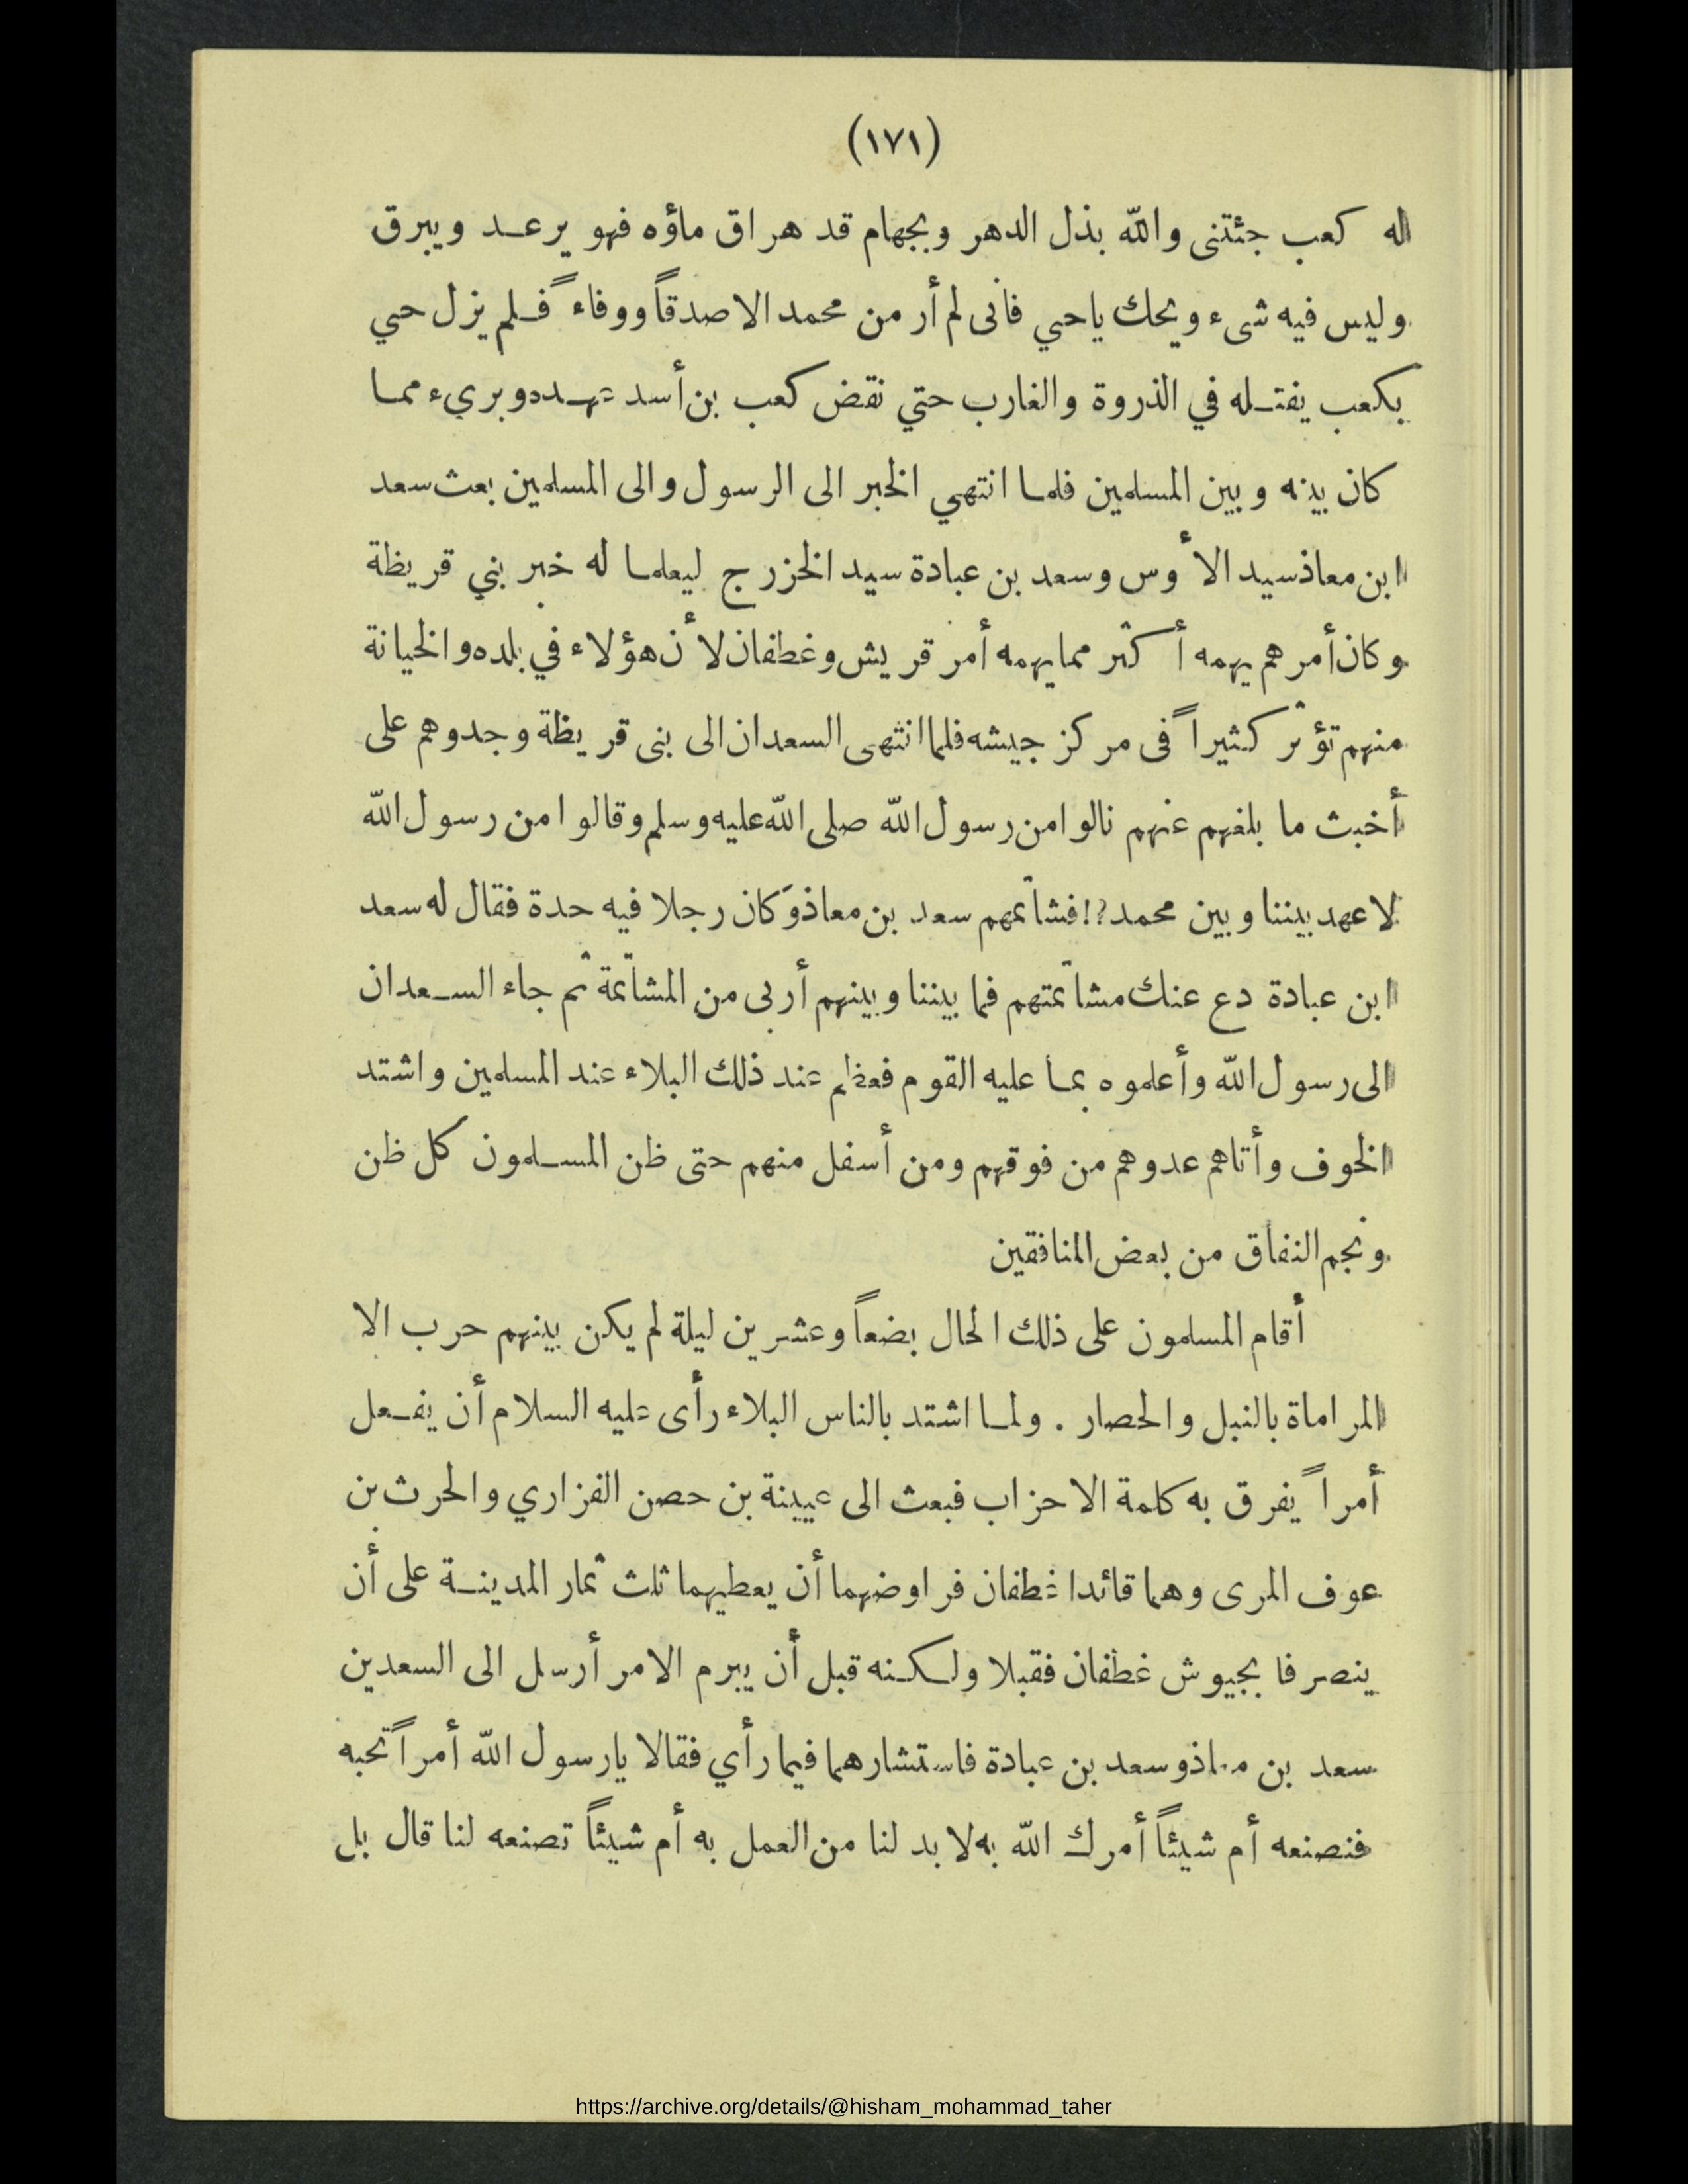 (١٧١)
له كعب جئتنى والله بذل الدهر وبجهام قد هراق ماؤه فهو يرعد ويبرق
وليس فيه شىء ويحك ياحي فانى لم أر من محمد الا صدقاً ووفاءً فلم يزل حي
بكعب يفتله في الذروة والغارب حتي نقض كعب بن أسد عهده وبريء مما
كان بينه وبين المسلمين فلما انتهي الخبر الى الرسول والى المسلمين بعث سعد
ابن معاذ سيد الأوس وسعد بن عبادة سيد الخزرج ليعلما له خبر بني قريظة
وكان أمرهم يهمه أكثر مما يهمه أمر قريش وغطفان لأن هؤلاء في بلده والخيانة
منهم تؤثر كثيراً فى مركز جيشه فلما انتهى السعدان الى بنى قريظة وجدوهم على
أخبث ما بلغهم عنهم نالوا من رسول الله صلى الله عليه وسلم وقالوا من رسول الله
لا عهد بيننا وبين محمد؟! فشاتمهم سعد بن معاذ وَكان رجلا فيه حدة فقال له سعد
ابن عبادة دع عنك مشاتمتهم فما بيننا وبينهم أربى من المشاتمة ثم جاء السعدان
الى رسول الله وأعلموه بما عليه القوم فعظم عند ذلك البلاء عند المسلمين واشتد
الخوف وأتاهم عدوهم من فوقهم ومن أسفل منهم حتى ظن المسلمون كل ظن
ونجم النفاق من بعض المنافقين
أقام المسلمون على ذلك الحال بضعاً وعشرين ليلة لم يكن بينهم حرب الا
المراماة بالنبل والحصار . ولما اشتد بالناس البلاء رأى عليه السلام أن يفعل
أمراً يفرق به كلمة الاحزاب فبعث الى عيينة بن حصن الفزاري والحرث بن
عوف المرى وهما قائدا غطفان فراوضهما أن يعطيهما ثلث ثمار المدينة على أن
ينصرفا بجيوش غطفان فقبلا ولكنه قبل أن يبرم الامر أرسل الى السعدين
سعد بن معاذ وسعد بن عبادة فاستشارهما فيما رأي فقالا يارسول الله أمراً تحبه
فنصنعه أم شيئاً أمرك الله به لا بد لنا من العمل به أم شيئاً تصنعه لنا قال بل
https://archive.org/details/@hisham_mohammad_taher